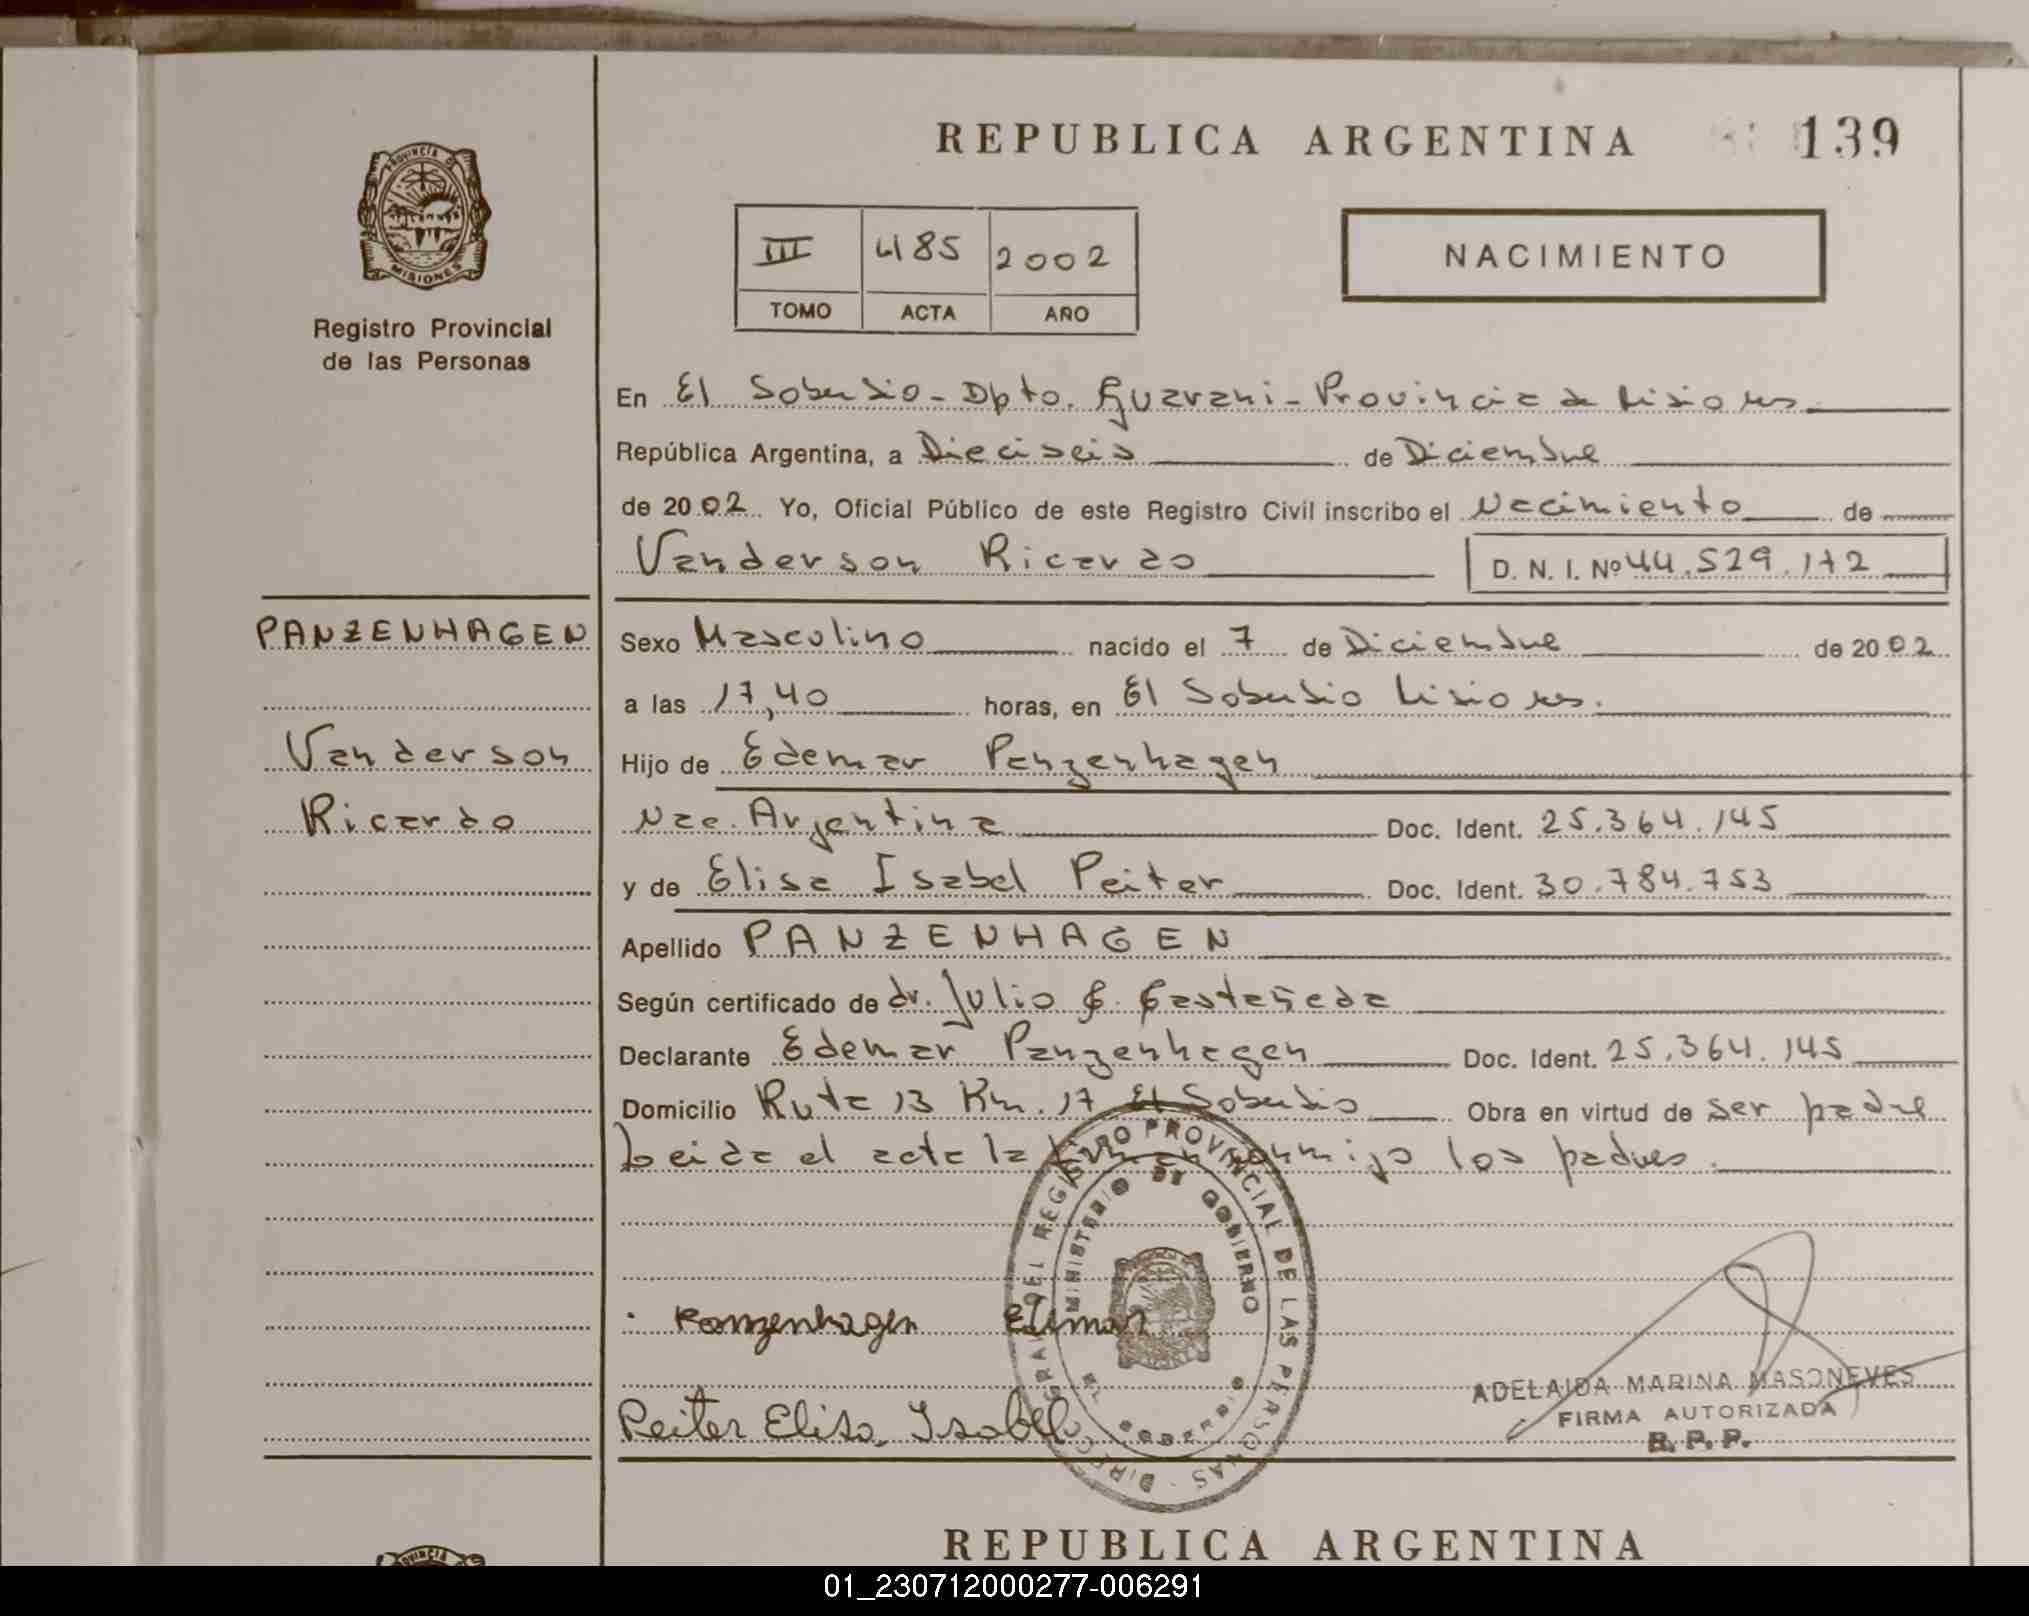 REPUBLICA ARGENTINA 139
PROVINCIA DE
MISIONES
Registro Provincial
de las Personas
III 485 2002
TOMO ACTA AÑO
NACIMIENTO
En El Soberbio - Dpto. Guarani - Provincia de Misiones
República Argentina, a Dieciseis de Diciembre
de 2002 Yo, Oficial Público de este Registro Civil inscribo el Nacimiento de
Vanderson Ricardo D. N. I. Nº 44.529.172
PANZENHAGEN
Vanderson
Ricardo
Sexo Masculino nacido el 7 de Diciembre de 2002
a las 17,40 horas, en El Soberbio Misiones.
Hijo de Edemar Panzenhagen
Nac. Argentina Doc. Ident. 25.364.145
y de Elisa Isabel Peiter Doc. Ident. 30.784.753
Apellido PANZENHAGEN
Según certificado de dr. Julio G. Gastañeda
Declarante Edemar Panzenhagen Doc. Ident. 25.364.145
Domicilio Ruta 13 Km. 17 El Soberbio Obra en virtud de ser padre
Leida el acta la firman conmigo los padres.
REGISTRO PROVINCIAL DE LAS PERSONAS
MINISTERIO DE GOBIERNO
Panzenhagen Edemar
Peiter Elisa Isabel
ADELAIDA MARINA MASONEVES
FIRMA AUTORIZADA
R. P. P.
REPUBLICA ARGENTINA
PROVINCIA
01_230712000277-006291